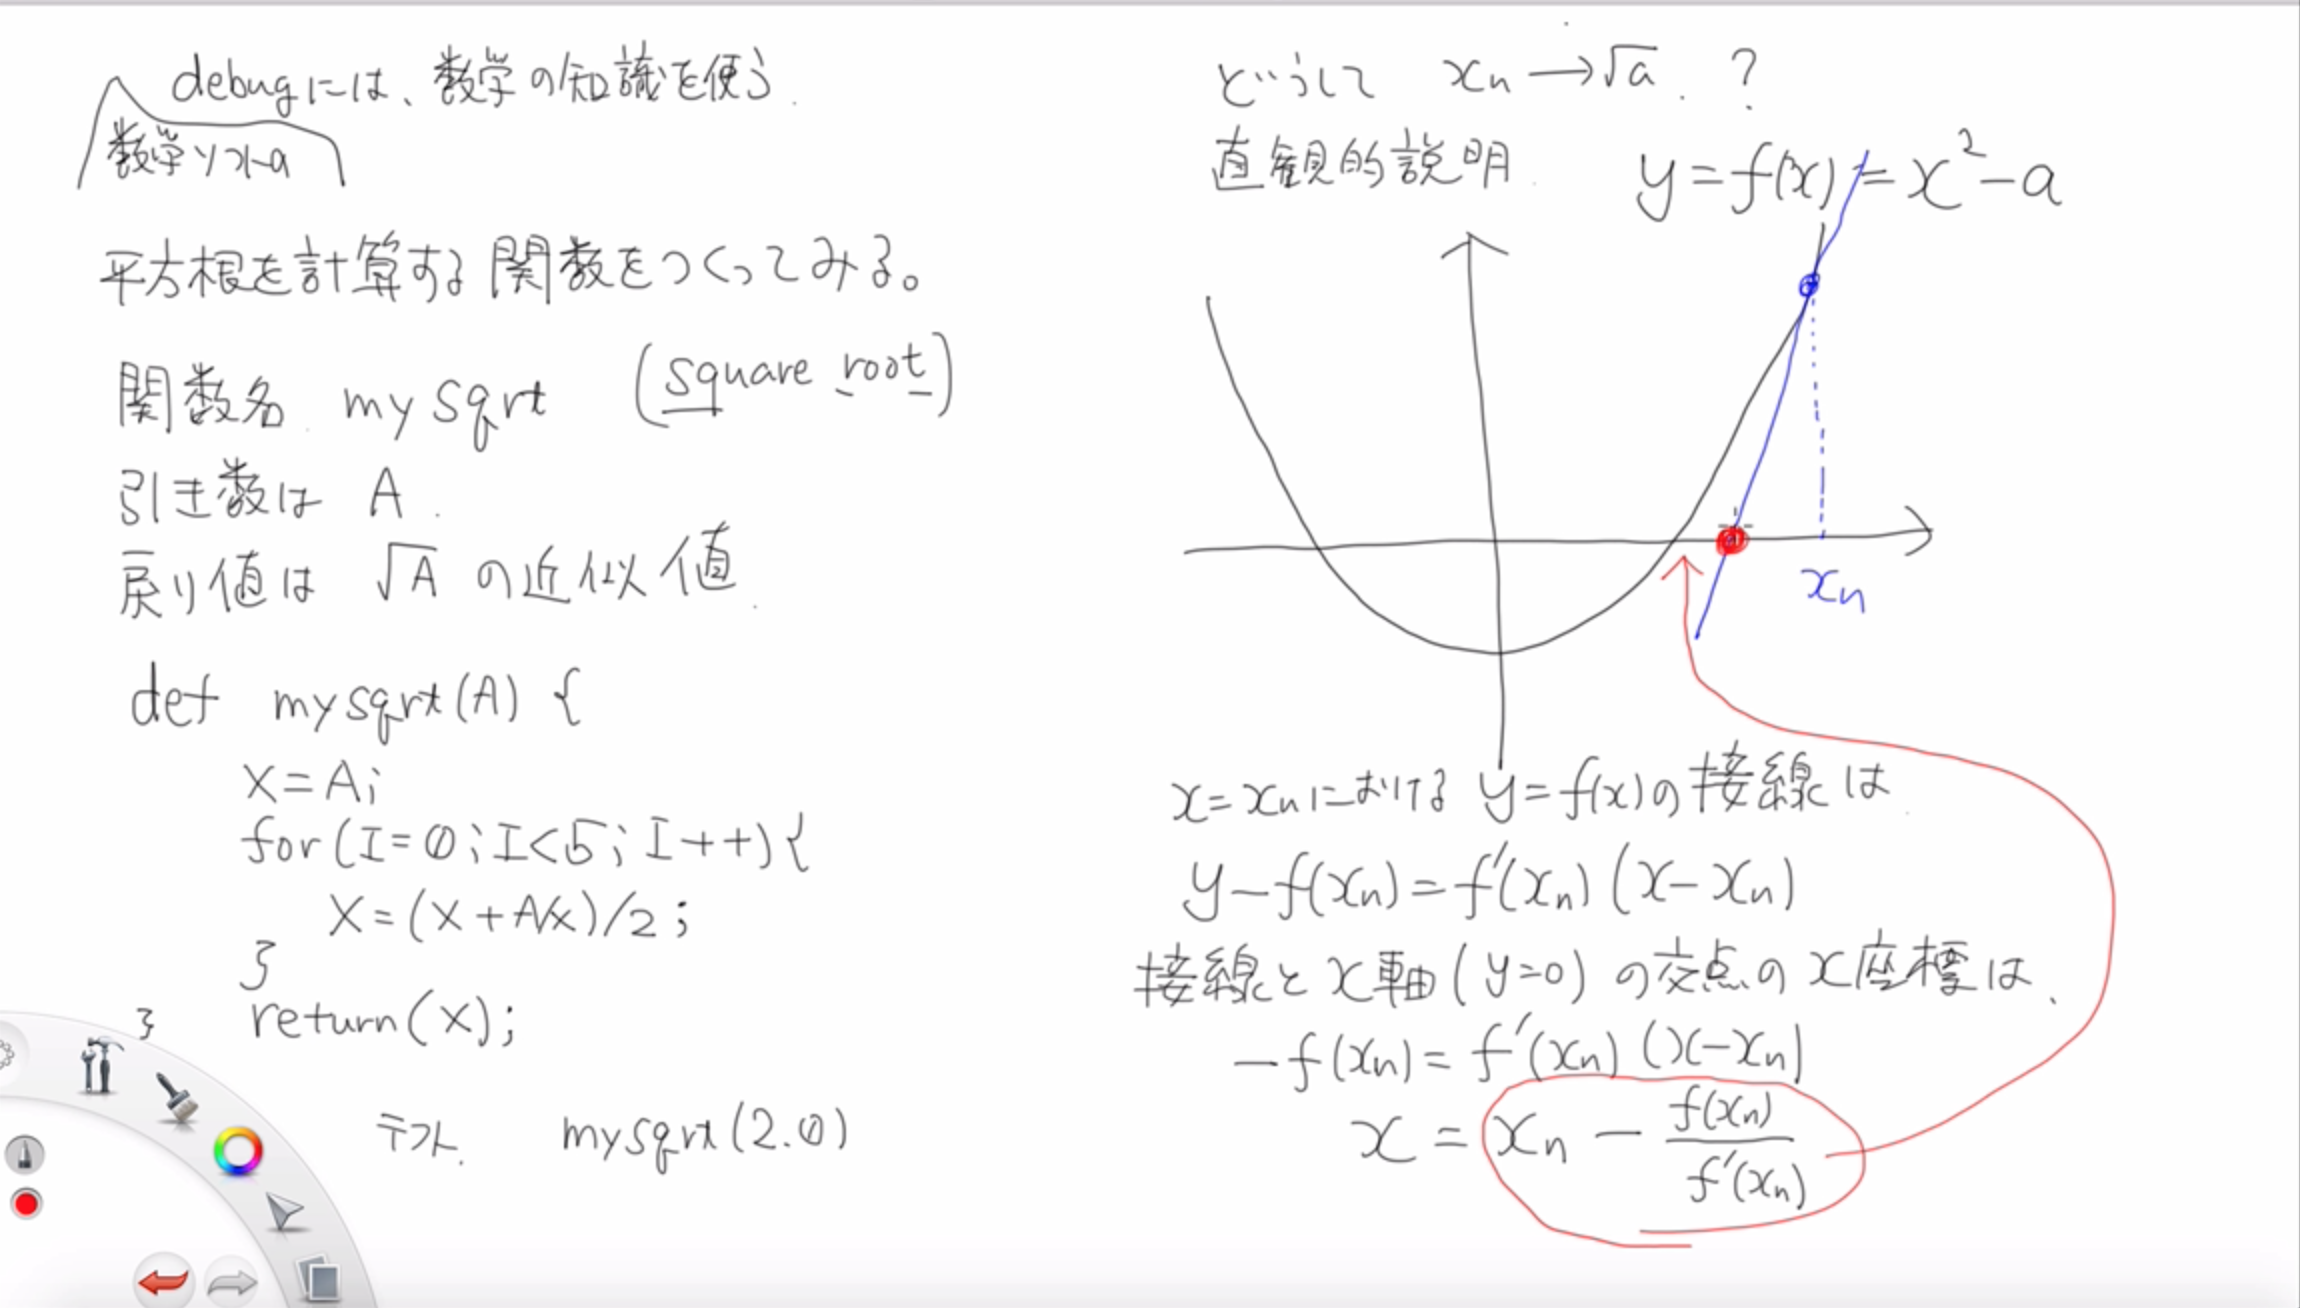 debugには、数学の知識を使う.
数学ソフトの
平方根を計算する関数をつくってみる。
関数名. mysqrt (square root)
引き数は A.
戻り値は √A の近似値.
def mysqrt(A) {
X=A;
for(I=0;I<5;I++){
X=(X+A/X)/2;
}
return(X);
}
テスト. mysqrt(2.0)
どうして xn→√a. ?
直観的説明.
y=f(x)=x²-a
xn
x=xnにおける y=f(x)の接線は
y-f(xn)=f'(xn)(x-xn)
接線とx軸(y=0)の交点のx座標は、
-f(xn)=f'(xn)(x-xn)
x = xn - f(xn)/f'(xn)